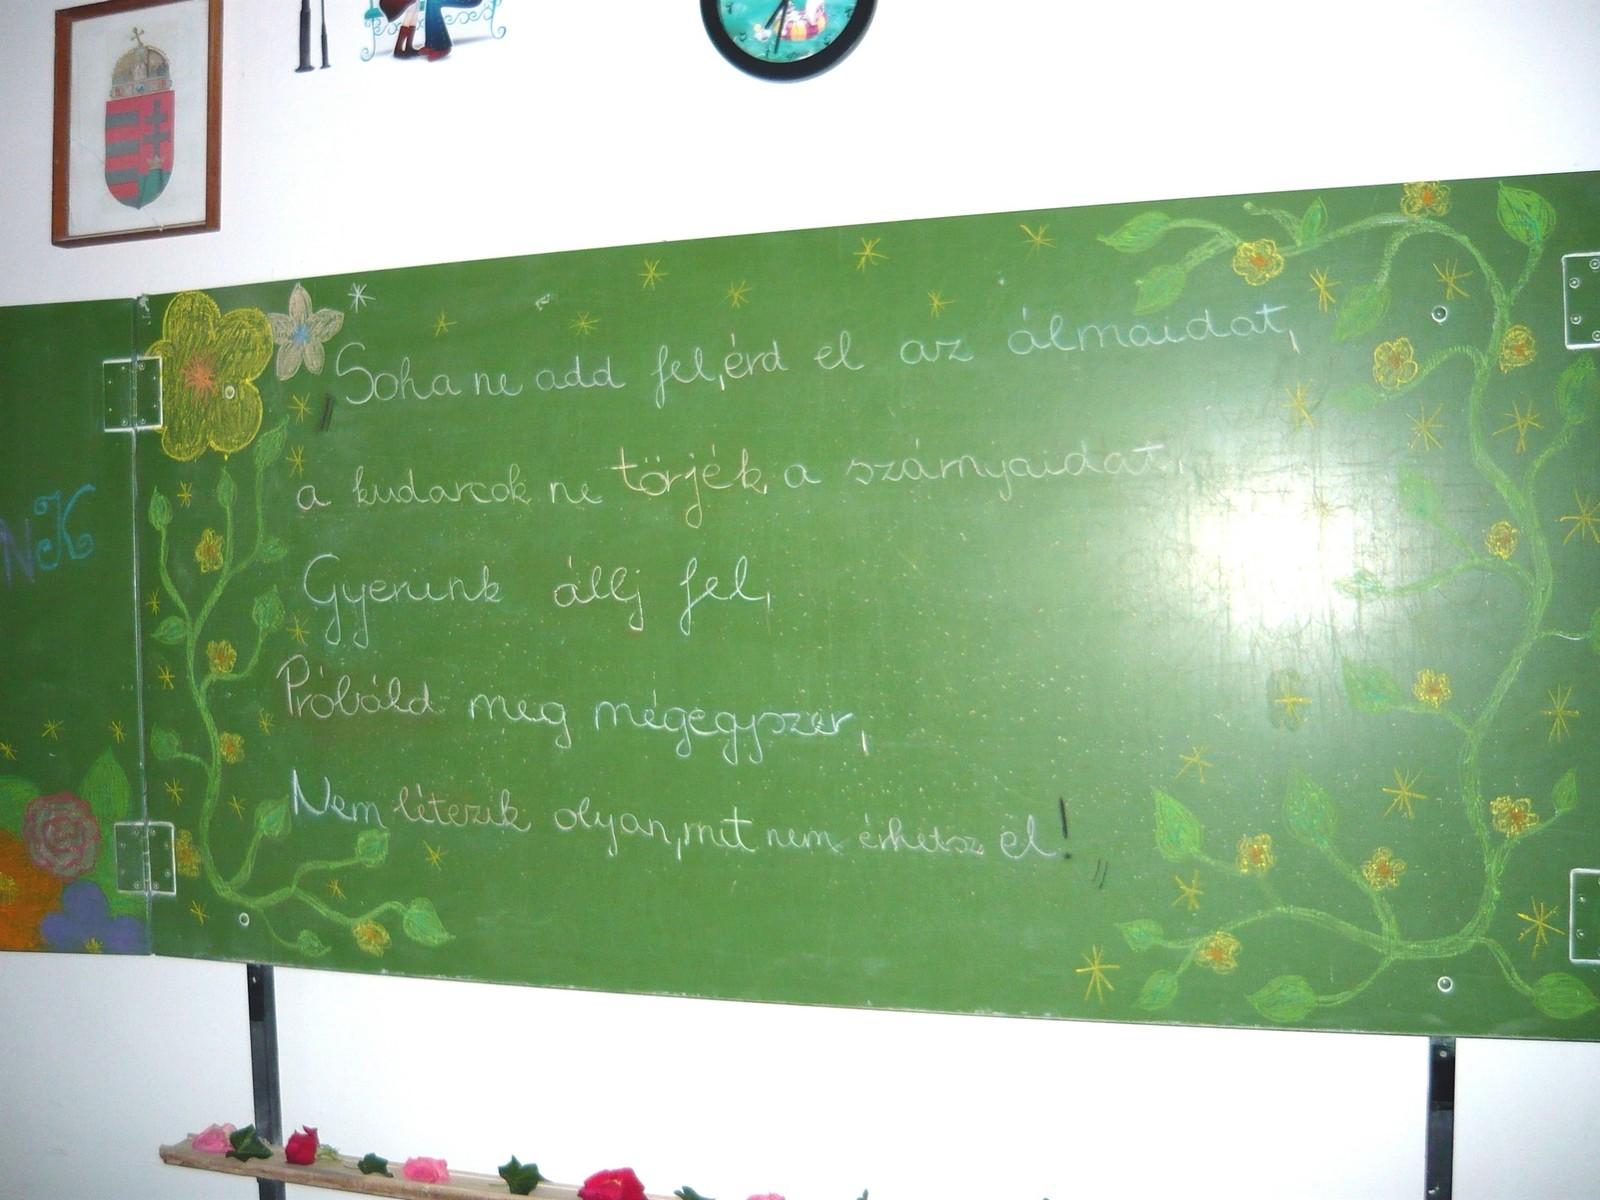 „Soha ne add fel, érd el az álmaidat,
a kudarcok ne törjék a szárnyaidat.
Gyerünk állj fel,
Próbáld meg mégegyszer,
Nem létezik olyan, mit nem érhetsz el!”
NcK